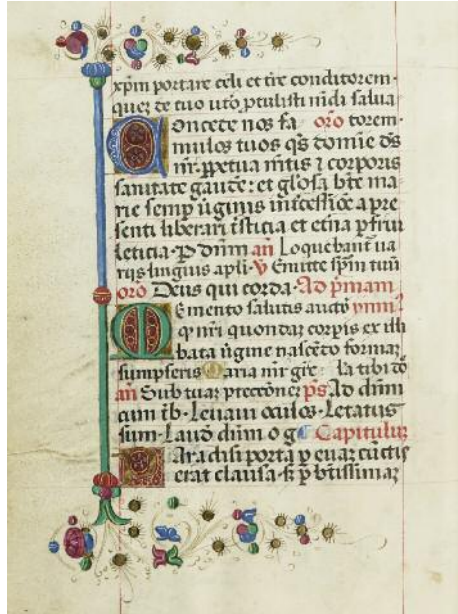 xp̄m portare celi et tr̄e conditorem·
que͛ de tuo ut̄o p̄tulisti mūdi salua
Concede nos fa or̄o torem·
mulos tuos q̄s domīe d̄s
nr̄· ꝑpetua mētis ⁊ corporis
sanitate gaude͛: et gl̄osa bt̄e ma
rie semꝑ ūginis īt̄cessiōe a pre
senti liberari t̄sticia et et̄na ꝑfrui
leticia· P dn̄m an̄ Loquebant͛ ua
rijs linguis apl̄i· ℣ Emitte sp̄m tuū
or̄o Deus qui corda· Ad p̄mam
Memento salutis auctō ymn᷒
q nr̄i quondaꝫ corꝑis ex illi
bata ūgine nascēdo formaꝫ
sumpseris Maria mr̄ gr̄e la tibi dō
an̄ Sub tuaꝫ ꝓtectionē p̄s Ad dn̄m
cum t̄b· Leuaui oculos· Letatus
sum· Laud̄ dn̄m o ḡ Capituluꝫ
Paradisi porta ꝑ euaꝫ cūctis
erat clausa· ⁊ ꝑ bt̄issimaꝫ